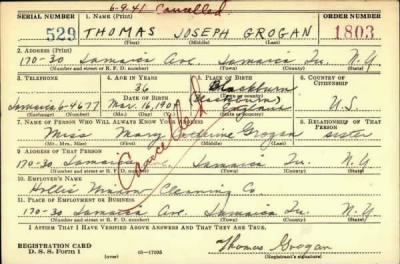 6-9-41 Cancelled
SERIAL NUMBER 1. NAME (Print) ORDER NUMBER
529 THOMAS JOSEPH GROGAN 1803
(First) (Middle) (Last)
2. ADDRESS (Print)
170-30 Jamaica Ave. Jamaica Qu. N.Y
(Number and street or R. F. D. number) (Town) (County) (State)
3. TELEPHONE 4. AGE IN YEARS 5. PLACE OF BIRTH 6. COUNTRY OF CITIZENSHIP
36 Blackburn
Jamaica 6-4677 Mar. 16, 1904 (Blackburn) England U.S.
7. NAME OF PERSON WHO WILL ALWAYS KNOW YOUR ADDRESS 8. RELATIONSHIP OF THAT PERSON
Miss Mary Grogan sister
(Mr., Mrs., Miss) (First) (Middle) (Last)
9. ADDRESS OF THAT PERSON
170-30 Jamaica Ave. Jamaica Qu. N.Y
(Number and street or R. F. D. number) (Town) (County) (State)
Cancelled
10. EMPLOYER'S NAME
Hollis Cleaning Co
11. PLACE OF EMPLOYMENT OR BUSINESS
170-30 Jamaica Ave. Jamaica Qu. N.Y
(Number and street or R. F. D. number) (Town) (County) (State)
I AFFIRM THAT I HAVE VERIFIED ABOVE ANSWERS AND THAT THEY ARE TRUE.
REGISTRATION CARD
D. S. S. Form 1 (over) Thomas Grogan
(Registrant's signature)